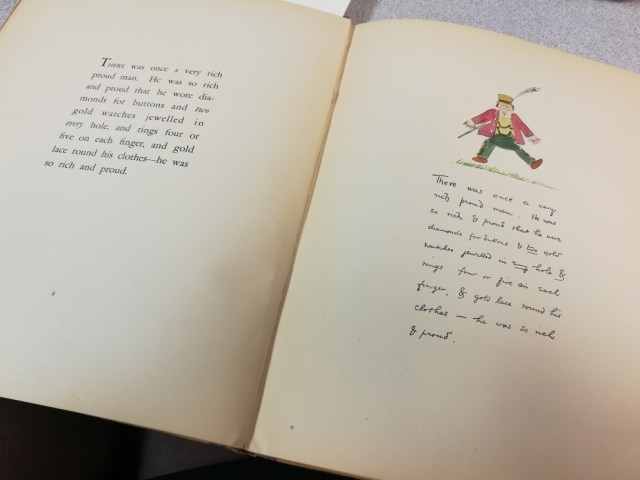 THERE was once a very rich
proud man. He was so rich
and proud that he wore dia-
monds for buttons and two
gold watches jewelled in
every hole, and rings four or
five on each finger, and gold
lace round his clothes—he was
so rich and proud.
There was once a very
rich proud man. He was
so rich & proud that he wore
diamonds for buttons & two gold
watches jewelled in every hole &
rings four or five on each
finger, & gold lace round his
clothes — he was so rich
& proud.